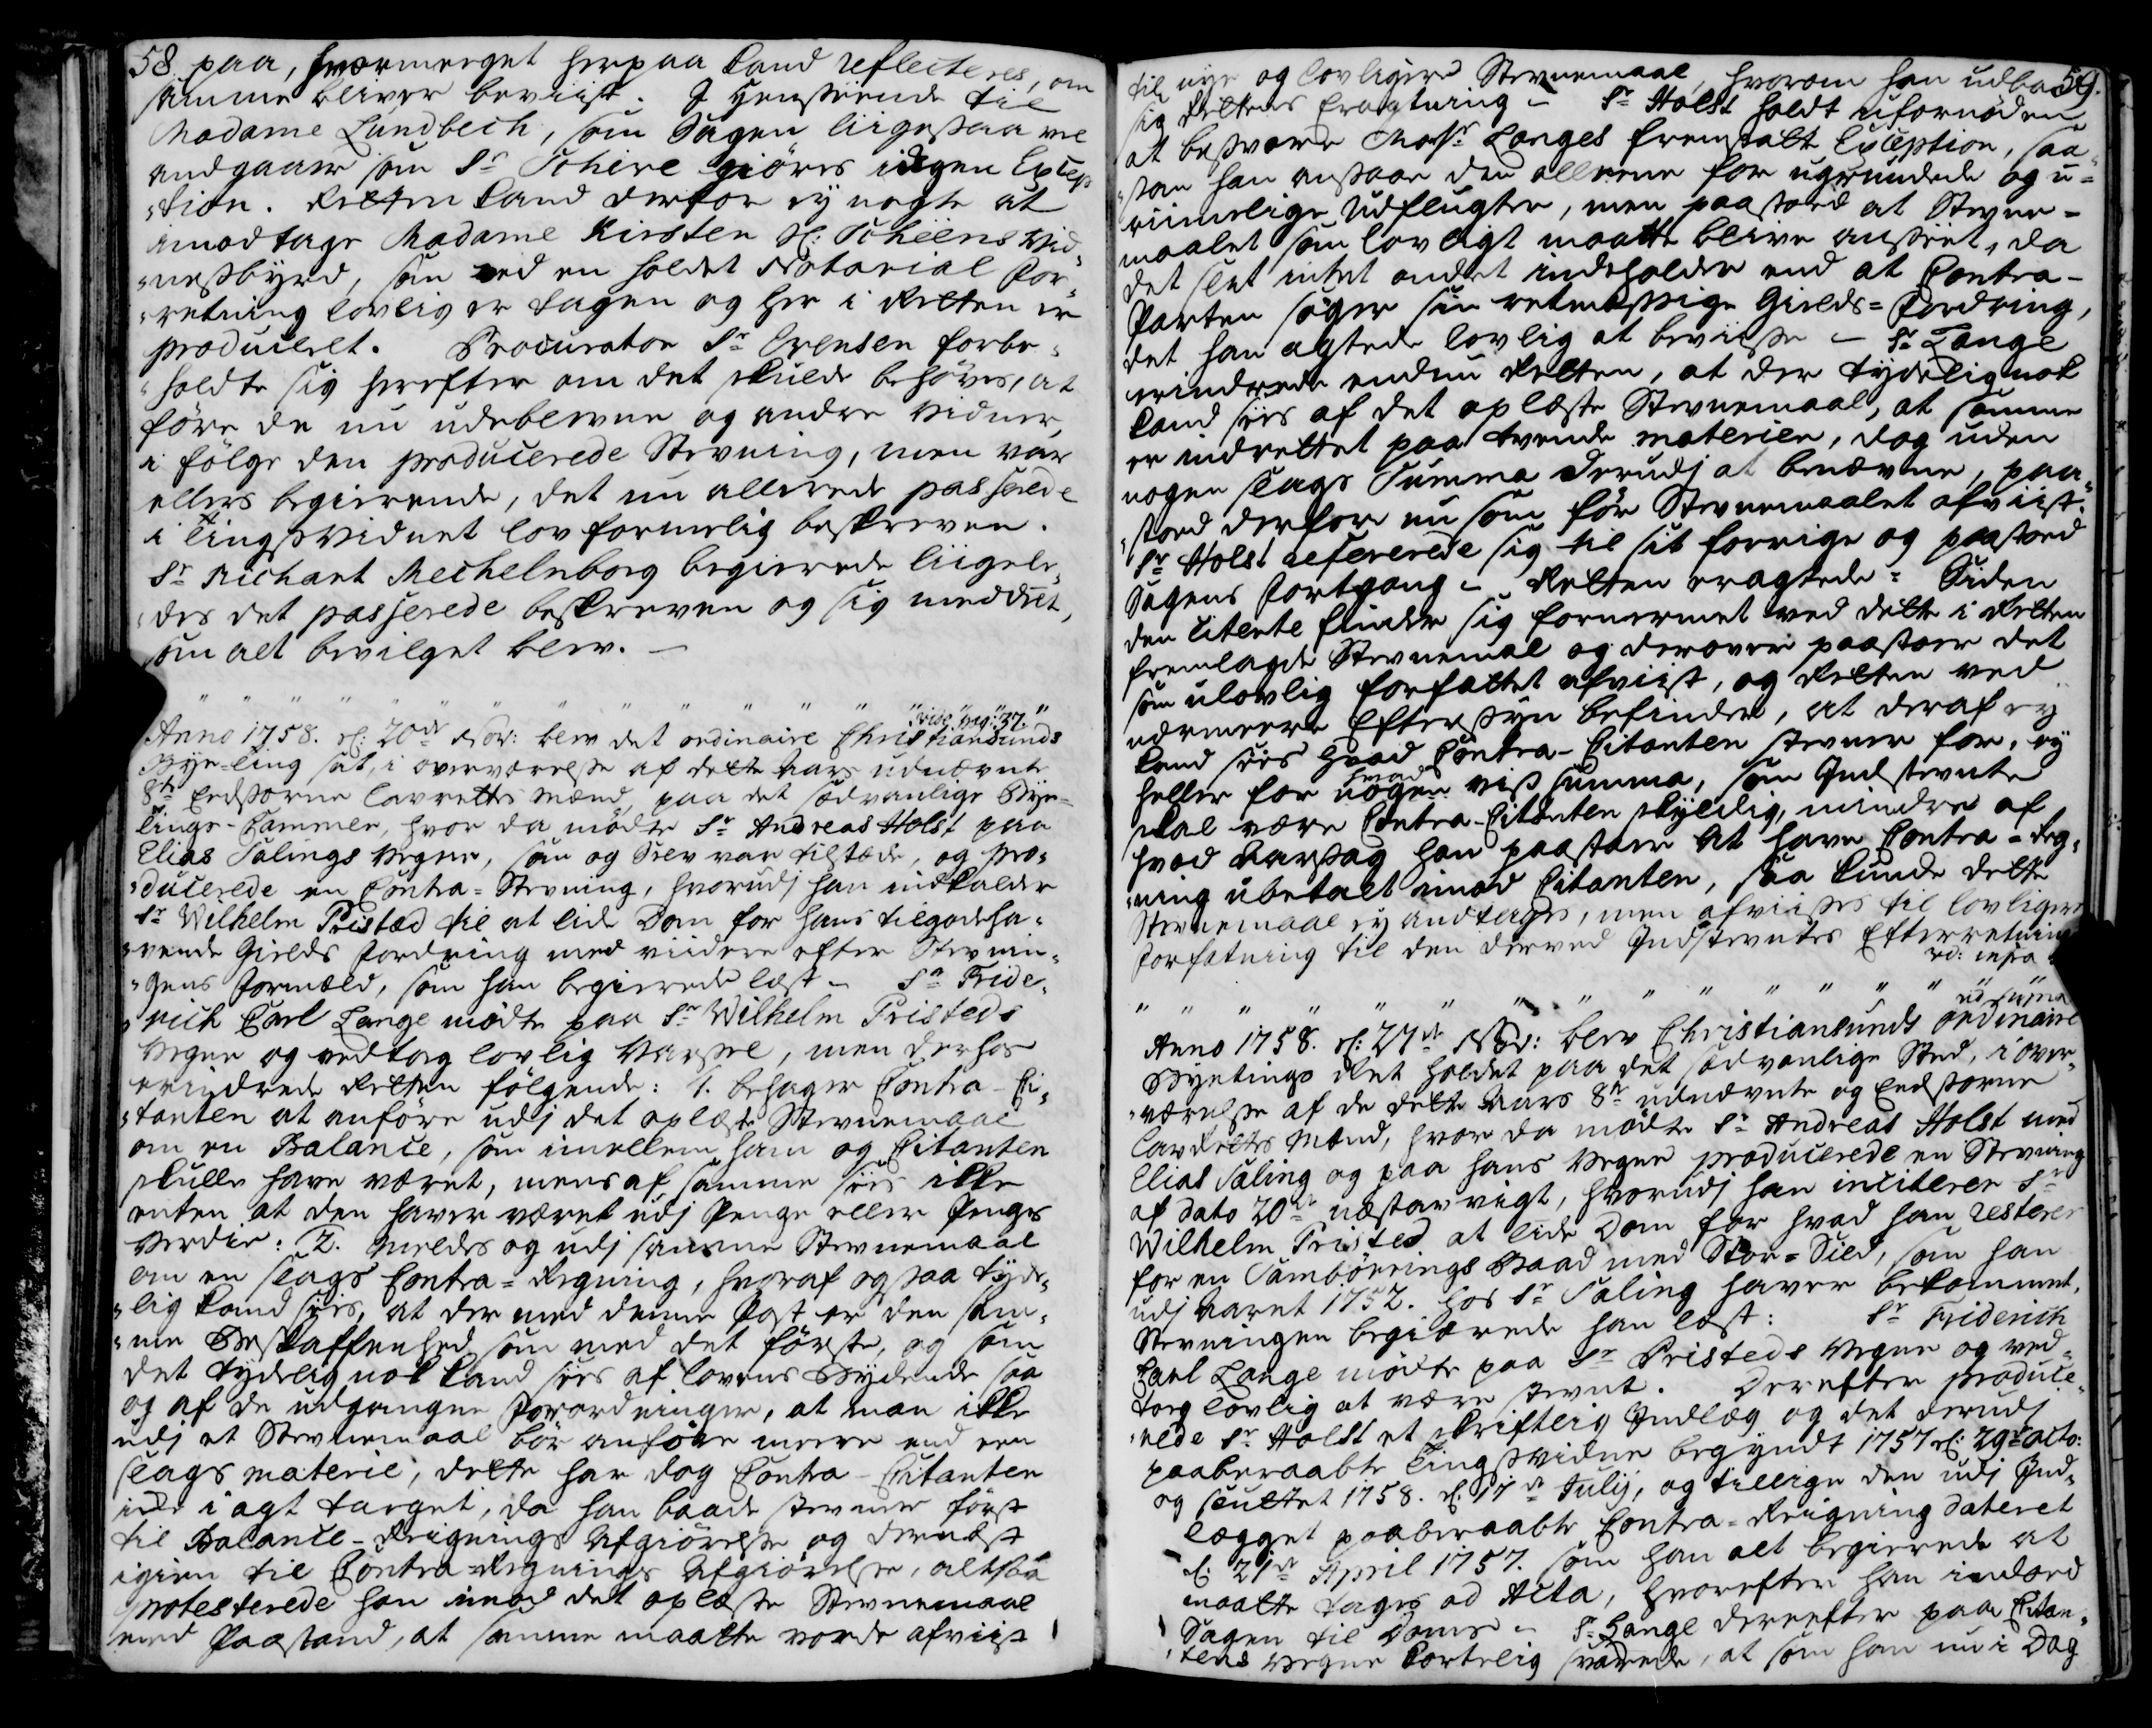 58 paa, hvormeget herpaa kand reflecteres, om
samme bliver beviist. I Henseende til
Madame Lundbech, som Sagen liigesaa vel
andgaaer som Sr Schive giöres ingen Excep¬
tion. Retten kand derfor ej negte at
imodtage Madame Kirsten Sl: Schiens Vid¬
nesbyrd, som ved en holdet Notarial For¬
retning lovlig er tagen og her i Retten er
produceret. Procurator Sr Erensen forbe¬
holdte sig herefter om det skulde behöves, at
före de nu udeblevne og andre Vidner,
i fölge den producerede Stevning, men var
ellers begierende, det nu allerede passerede
i Tingsvidnet lovformelig beskreven.
Sr Richart Mechelnborg begierede liigele¬
des det passerede beskreven og sig meddeelt,
som alt bevilget blev. –
" " " " " " " " " " " " "
vide pag: 37.
Anno 1758. d: 20de Nov: blev det ordinaire Christiansunds
Bye-Ting sat, i overværelse af dette aars udnævnte
8te Eedsorne Lavrettes Mænd, paa det sædvanlige Bye-
Tings-Kammer, hvor da mödte Sr Andreas Holst paa
Elias Salings Vegne, som og Selv var tilstæde, og pro¬
ducerede en Contra-Stevning, hvorudj han indkalder
Sr Wilhelm Pristed til at lide Dom for hans tilgodeha¬
vende Gields Fordring med viidere efter Stevnin¬
gens Formæld, som han begierede læst – Sr Fride¬
rich Carl Lange mödte paa Sr Wilhelm Pristeds
Vegne og vedtog lovlig Varsel, men derhos
erindrede Retten fölgende: 1. behager Contra-Ci¬
tanten at anföre udj det oplæste Stevnemaal
om en Balance, som imellem ham og Citanten
skulle have været, mens af samme sees ikke
enten at den haver været udj Penge eller Penges
Værdie: 2. meldes og udj samme Stevnemaal
om en slags Contra-Regning, hvoraf ogsaa tyde¬
lig kand sees, at der med denne Post er den sam¬
me Beskaffenhed som med det förste, og som
det tydelig nok kand sees af lovens Bydende saa
og af de udgangne Forordninger, at man ikke
udj et Stevnemaal bör anföre meere end een
slags materie, dette har dog Contra-Citanten
icke i agt taget, da han baade stevner först
til Balance-Reignings Afgiörelse og dernæst
igien til Contra-Regnings Afgiörelse, altsaa
protesterede han imod det oplæste Stevnemaal
med Paastand, at samme maatte vorde afviist
59.
til nye og lovligere Stevnemaal, hvorom han udbad
sig Rettens Eragtning – Sr Holst holdt ufornöden
at besvare Monsr Langes fremsatte Exception, saa¬
som han ansaae den allene for ugrundede og u¬
riimelige Udflugter, men paastoed at Stevne-
maalet som lovligt maatte blive anseet, da
det slet intet andet indeholder end at Contra-
Parten söger sin retmæssige Gields-Fordring,
det han agtede lovlig at beviise – Sr Lange
erindrede endnu Retten, at der tydelig nok
kand sees af det oplæste Stevnemaal, at samme
er indrettet paa tvende materier, dog uden
nogen slags Summa derudj at benævne, paa¬
stoed derfore nu som för Stevnemaalet afviist.
Sr Holst refererede sig til sit forrige og paastoed
Sagens Fortgang – Retten eragtede: Siden
den Citerte finder sig fornermet ved dette i Retten
fremlagde Stevnemal og derover paastaar det
som ulovlig forfattet afviist, og Retten ved
nærmere Eftersyn befinder, at deraf ej
kand sees hvad Contra-Citanten stevner for, ej
heller for hvad nogen vis summa, som Indstevnte
skal være Contra-Citanten skyldig, mindre af
hvad Aarsag han paastaar at have Contra-Reg¬
ning ubetalt imod Citanten, saa kunde dette
Stevnemaal ej andtages, men afviises til lovligere
Forfatning til den derved Indstevntes Efterretning
vid: infra
" " " " " " " " " " " " "
Anno 1758. d: 27de Nov: blev Christiansunds ordinaire
Byetings Ret holdet paa det sædvanlige Sted, i over¬
værelse af de dette Aars 8te udnævnte og Eedsorne
Lavrettes Mænd, hvor da mödte Sr Andreas Holst med
Elias Saling og paa hans Vegne producerede en Stevning
af dato 20de næstavvigt, hvorudj han inciterer Sr
Wilhelm Pristed at lide Dom for hvad han resterer
for en Sambörings Baad med Stor-Sild, som han
udj aaret 1752. hos Sr Saling haver bekommet.
Stevningen begiærede han læst: Sr Friderich
Carl Lange mödte paa Sr Pristeds Vegne og ved¬
tog lovlig at være stevnt. Derefter produce¬
rede Sr Holst et skriftlig Indlæg og det derudj
paaberaabte Tingsvidne begyndt 1757 d: 29de octo:
og sluttet 1758. d: 17de Julij, og tillige den udj Ind¬
lægget paaberaabte Contra-Reigning dateret
d: 21de April 1757. som han alt begierede at
maatte tages ad Acta, hvorefter han indlod
Sagen til Doms – Sr Lange derefter paa Citan¬
tens Vegne kortelig svarede, at som han nu i Dag